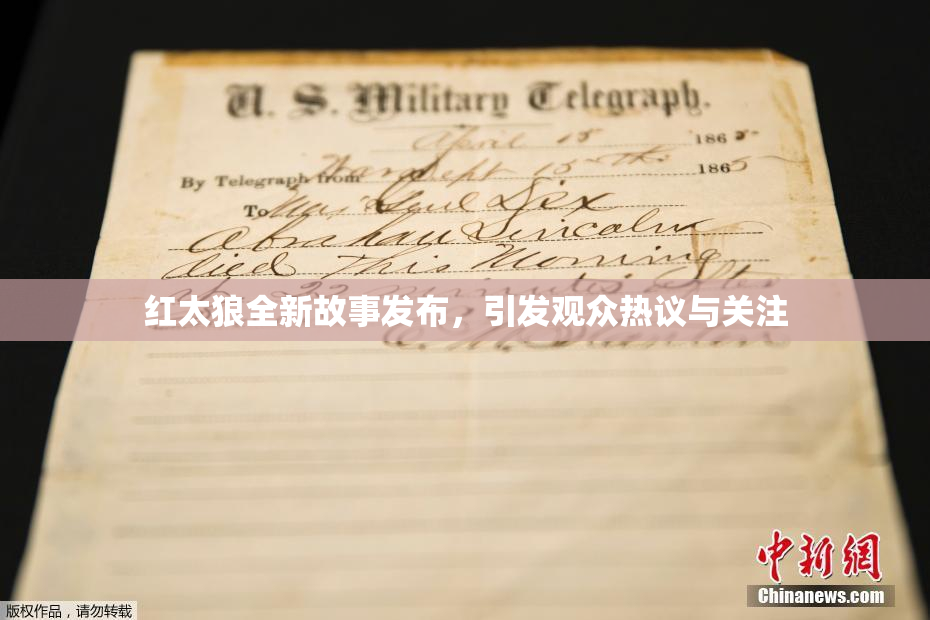 U. S. Military Telegraph.
April 15 1865
By Telegraph from War Dept 15th 1865
To Maj Genl Dix
Abraham Lincoln
died This Morning
at 22 minutes after
红太狼全新故事发布，引发观众热议与关注
E. M. Stanton
中新网
Chinanews.com
版权作品，请勿转载